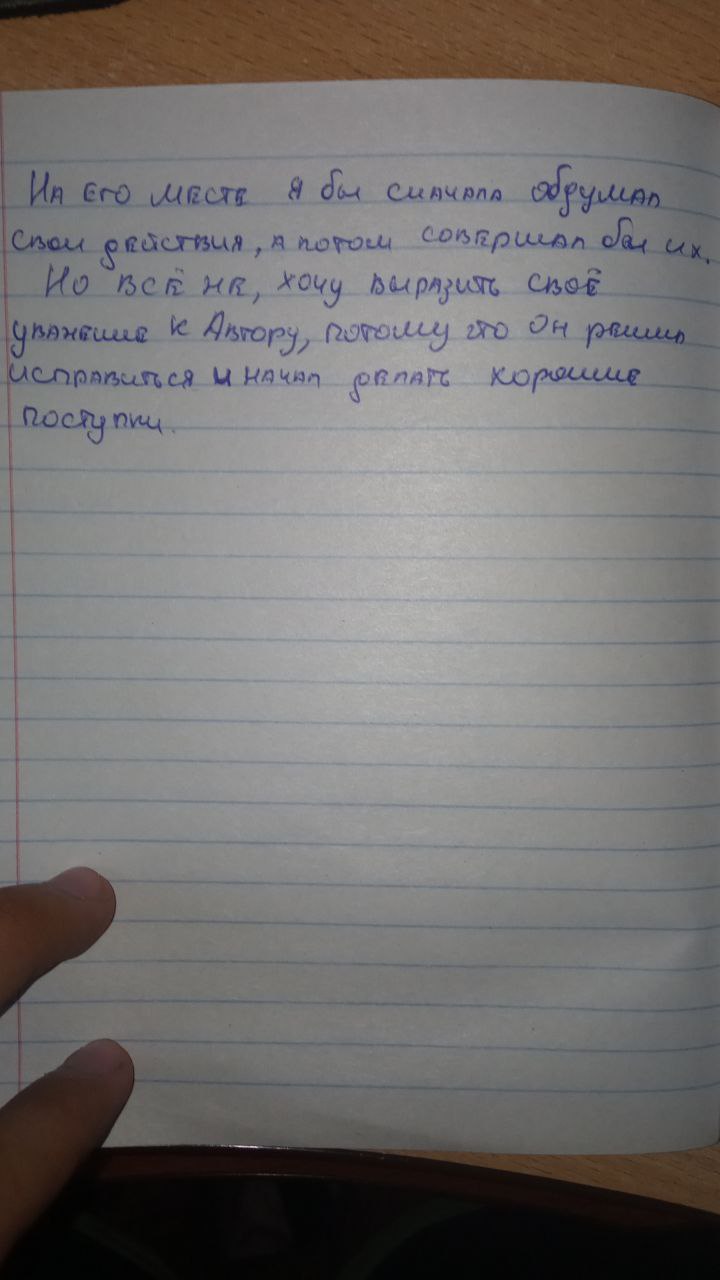 На его месте я бы сначала обдумал
свои действия, а потом совершал бы их.
Но всё же, хочу выразить своё
уважение к Автору, потому что он решил
исправиться и начал делать хорошие
поступки.